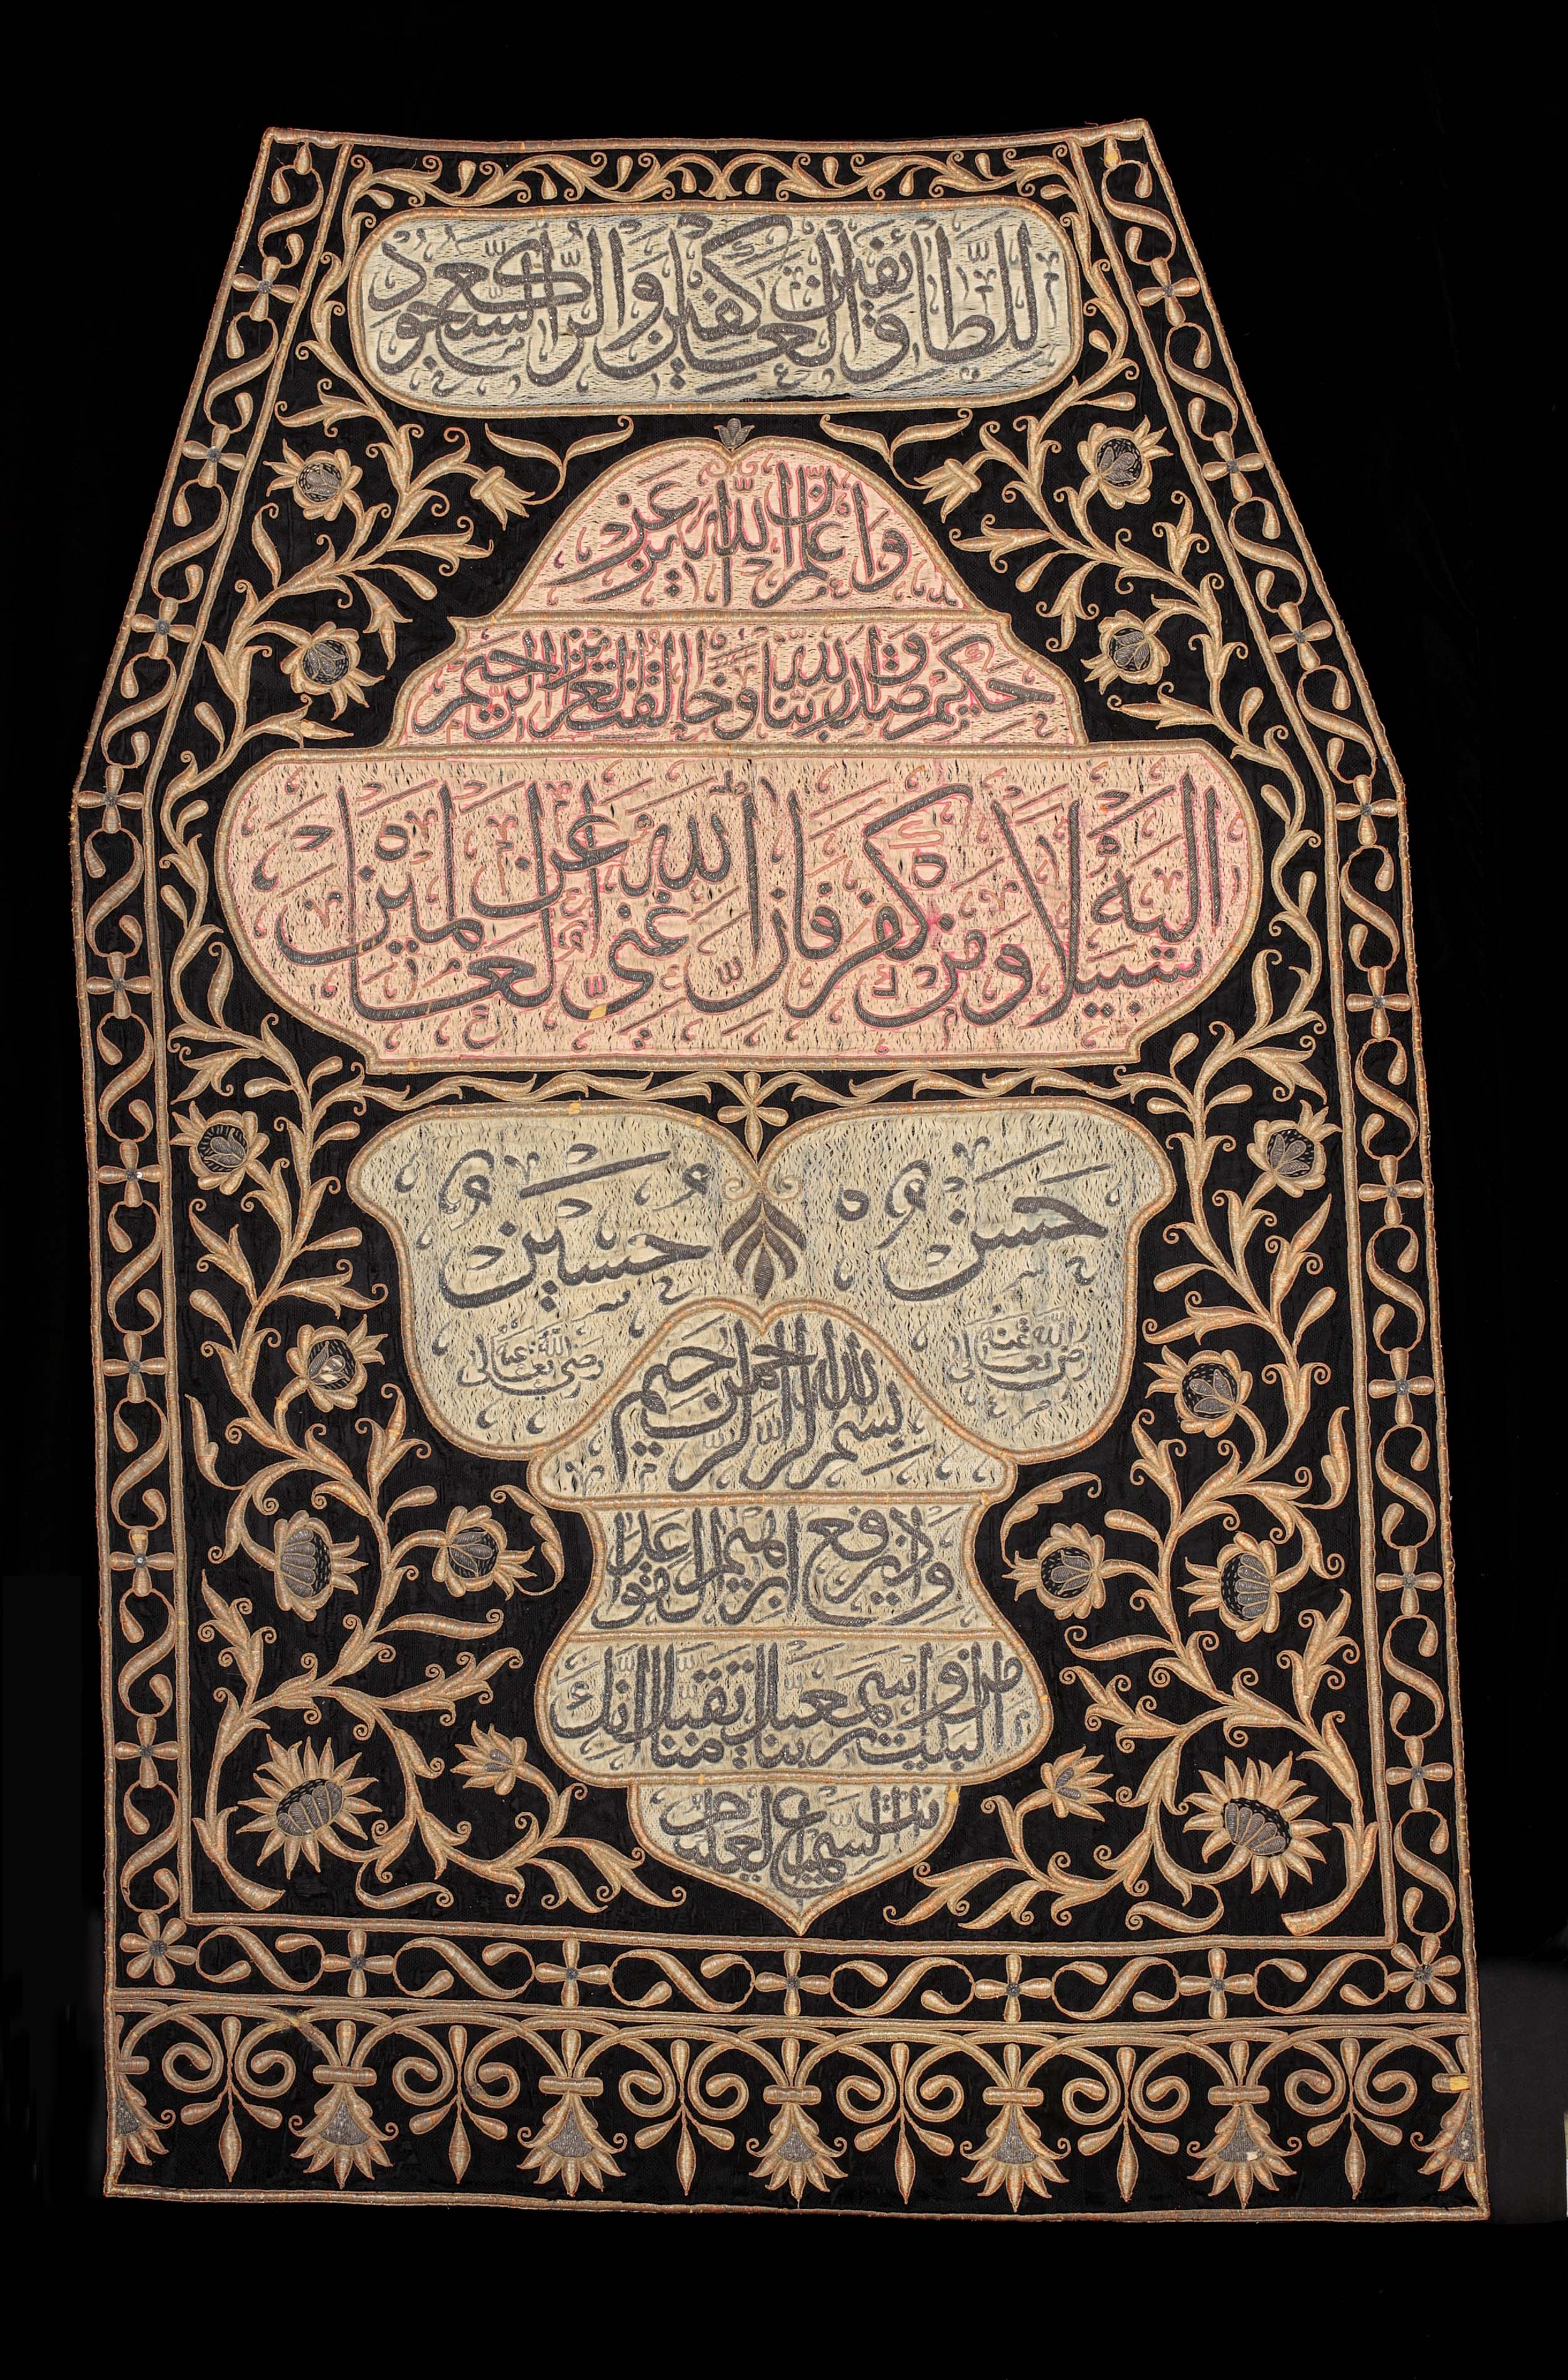 للطائفين والعاكفين والركع السجود
واعلم ان الله عزيز
حكيم صدق الله ربنا وخالقنا العزيز الرحيم
اليه سبيلا ومن كفر فان الله غني عن العالمين
حسن
رضي الله تعالى عنه
حسين
رضي الله تعالى عنه
بسم الله الرحمن الرحيم
واذ يرفع ابرهيم القواعد
من البيت واسمعيل ربنا تقبل منا انك
انت السميع العليم